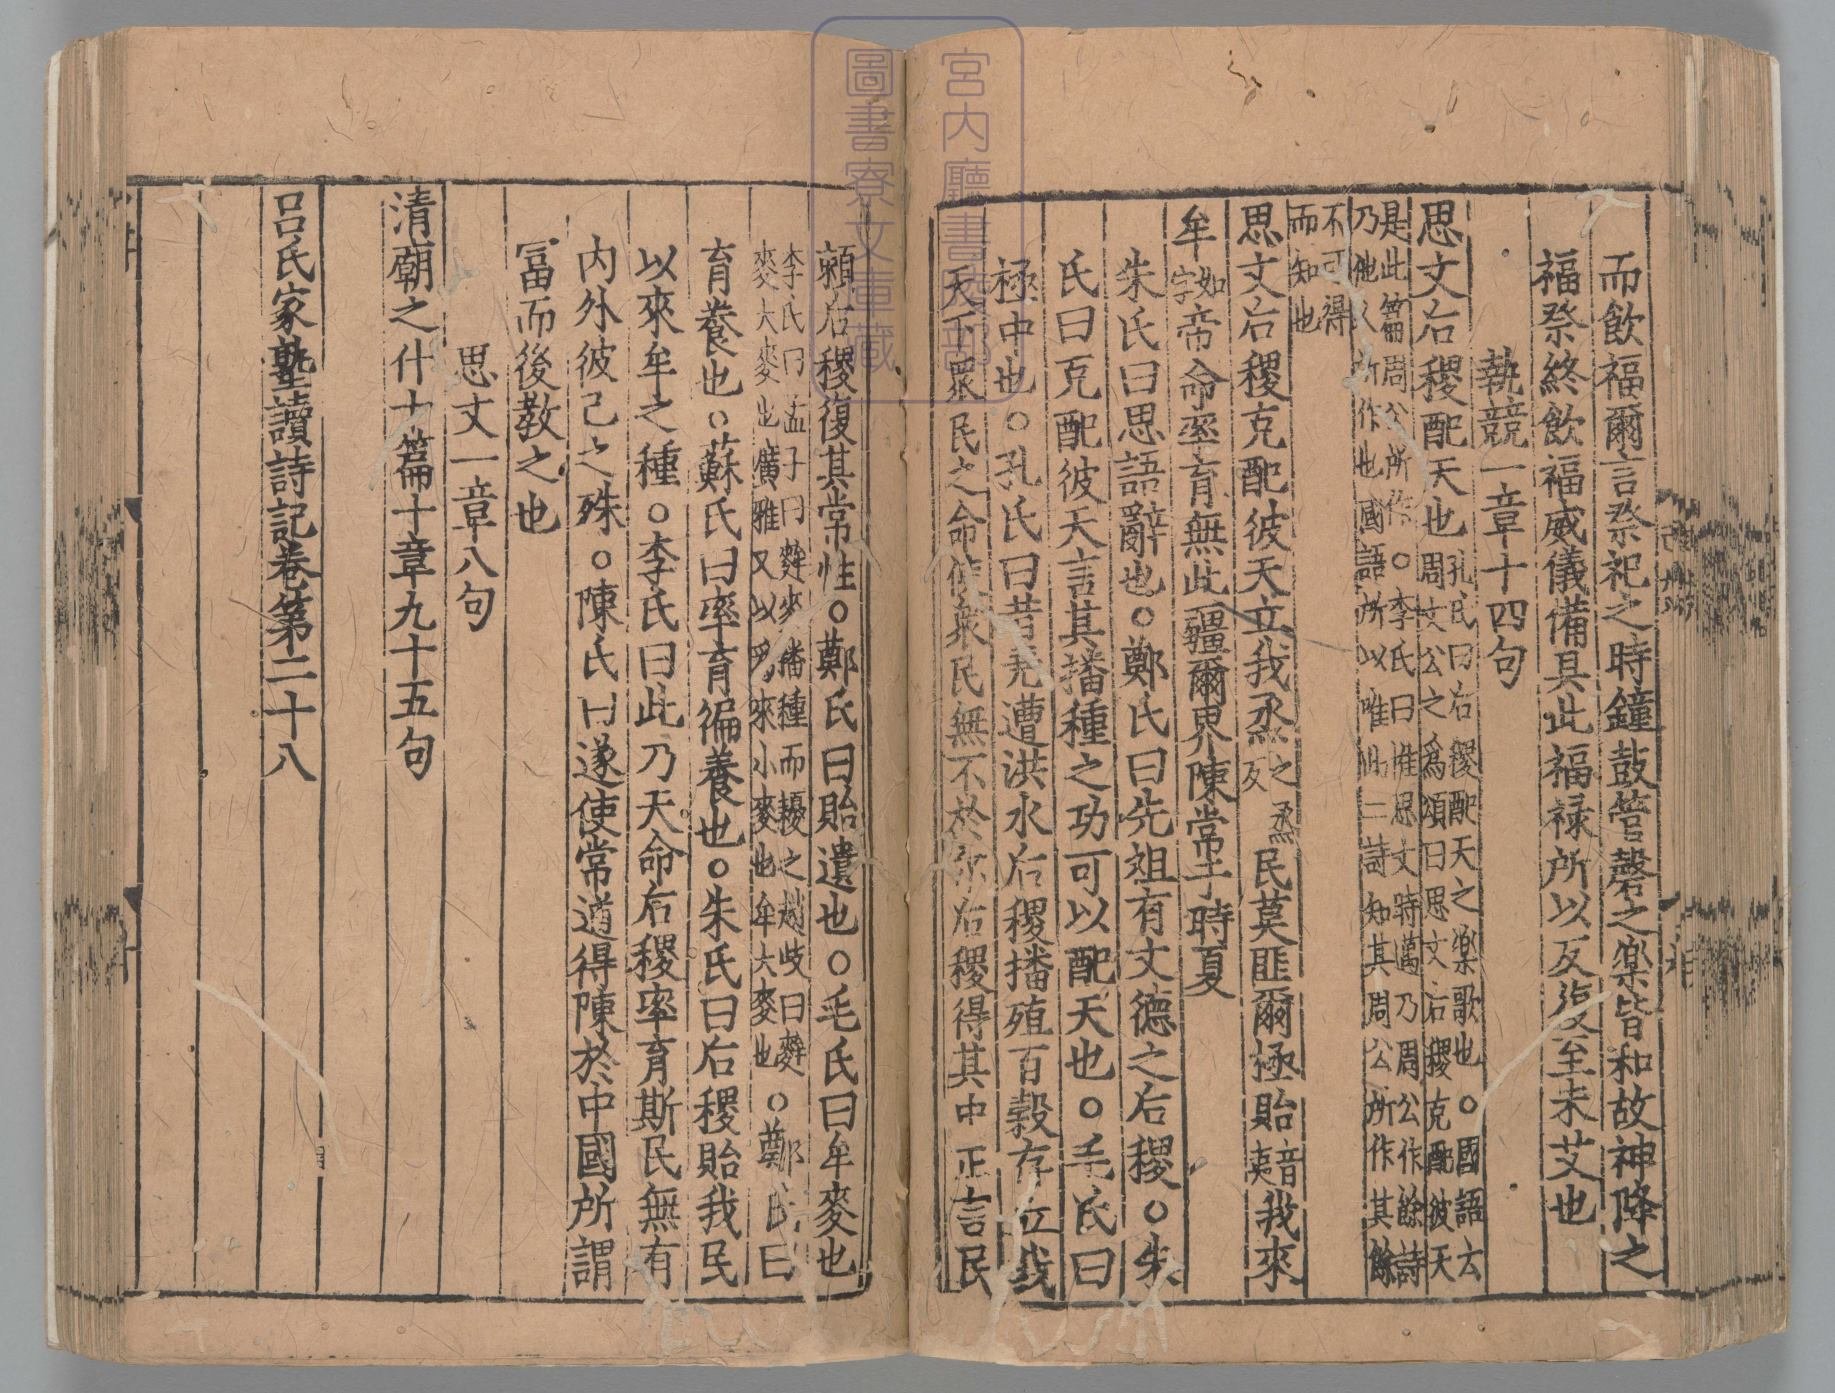 而飲福爾言祭祀之時鐘鼓管磬之樂皆和故神降之
福祭終飲福威儀備具此福祿所以反復至未艾也
執競一章十四句
思文后稷配天也
孔氏曰后稷配天之樂歌也○國語云
周文公之為頌曰思文后稷克配彼天
是此篇周公所作○李氏曰惟思文時邁乃周公作餘詩
乃他人所作也國語所以唯此二詩知其周公所作其餘
不可得
而知也
思文后稷克配彼天立我烝之烝反民莫匪爾極貽音夷我來
牟如字帝命率育無此疆爾界陳常于時夏
朱氏曰思語辭也○鄭氏曰先祖有文德之后稷○朱
氏曰克配彼天言其播種之功可以配天也○毛氏曰
極中也○孔氏曰昔堯遭洪水后稷播殖百穀存立我
天下眾民之命使眾民無不於爾后稷得其中正言民
賴后稷復其常性○鄭氏曰貽遺也○毛氏曰牟麥也
李氏曰孟子曰麰麥播種而耰之趙歧曰麰
麥大麥也廣雅又以為來小麥也牟大麥也
○鄭氏曰
育養也○蘇氏曰率育徧養也○朱氏曰后稷貽我民
以來牟之種○李氏曰此乃天命后稷率育斯民無有
內外彼己之殊○陳氏曰遂使常道得陳於中國所謂
富而後教之也
思文一章八句
清廟之什十篇十章九十五句
呂氏家塾讀詩記卷第二十八
宮內廳書陵部
圖書寮文庫藏